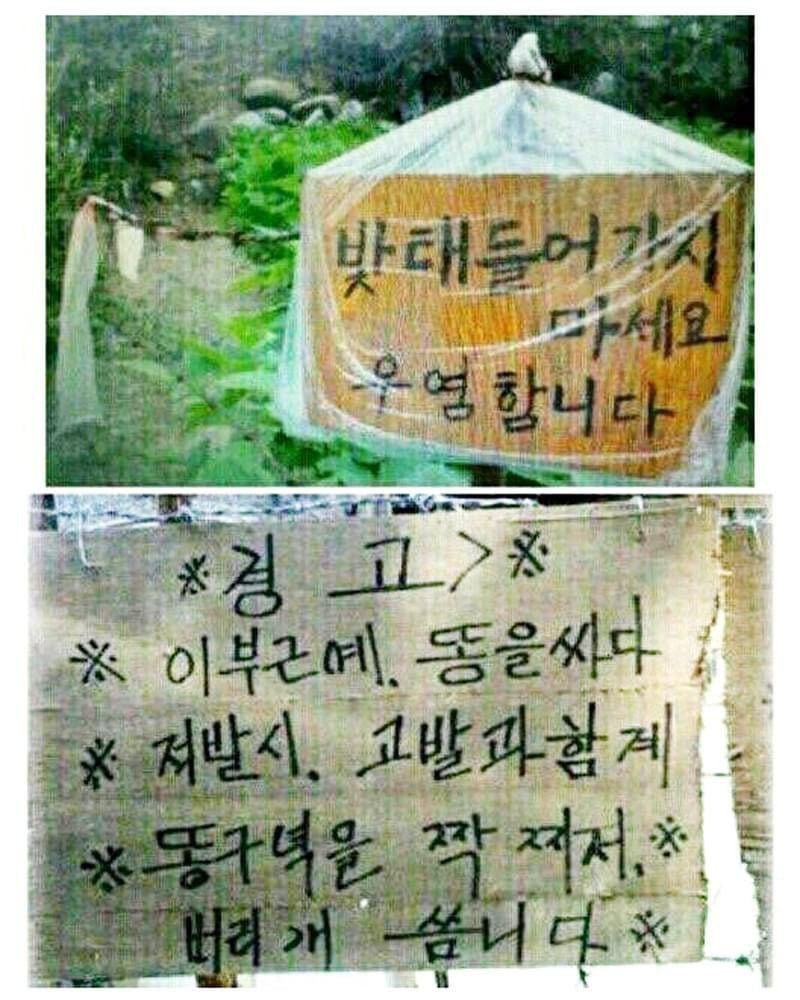 밧태들어가시
마세요
우염함니다
※경 고>※
※ 이부근예. 똥을싸다
※ 저발시. 고발과함계
※똥구녁을 짝 찌저.※
버리개 씀니다※